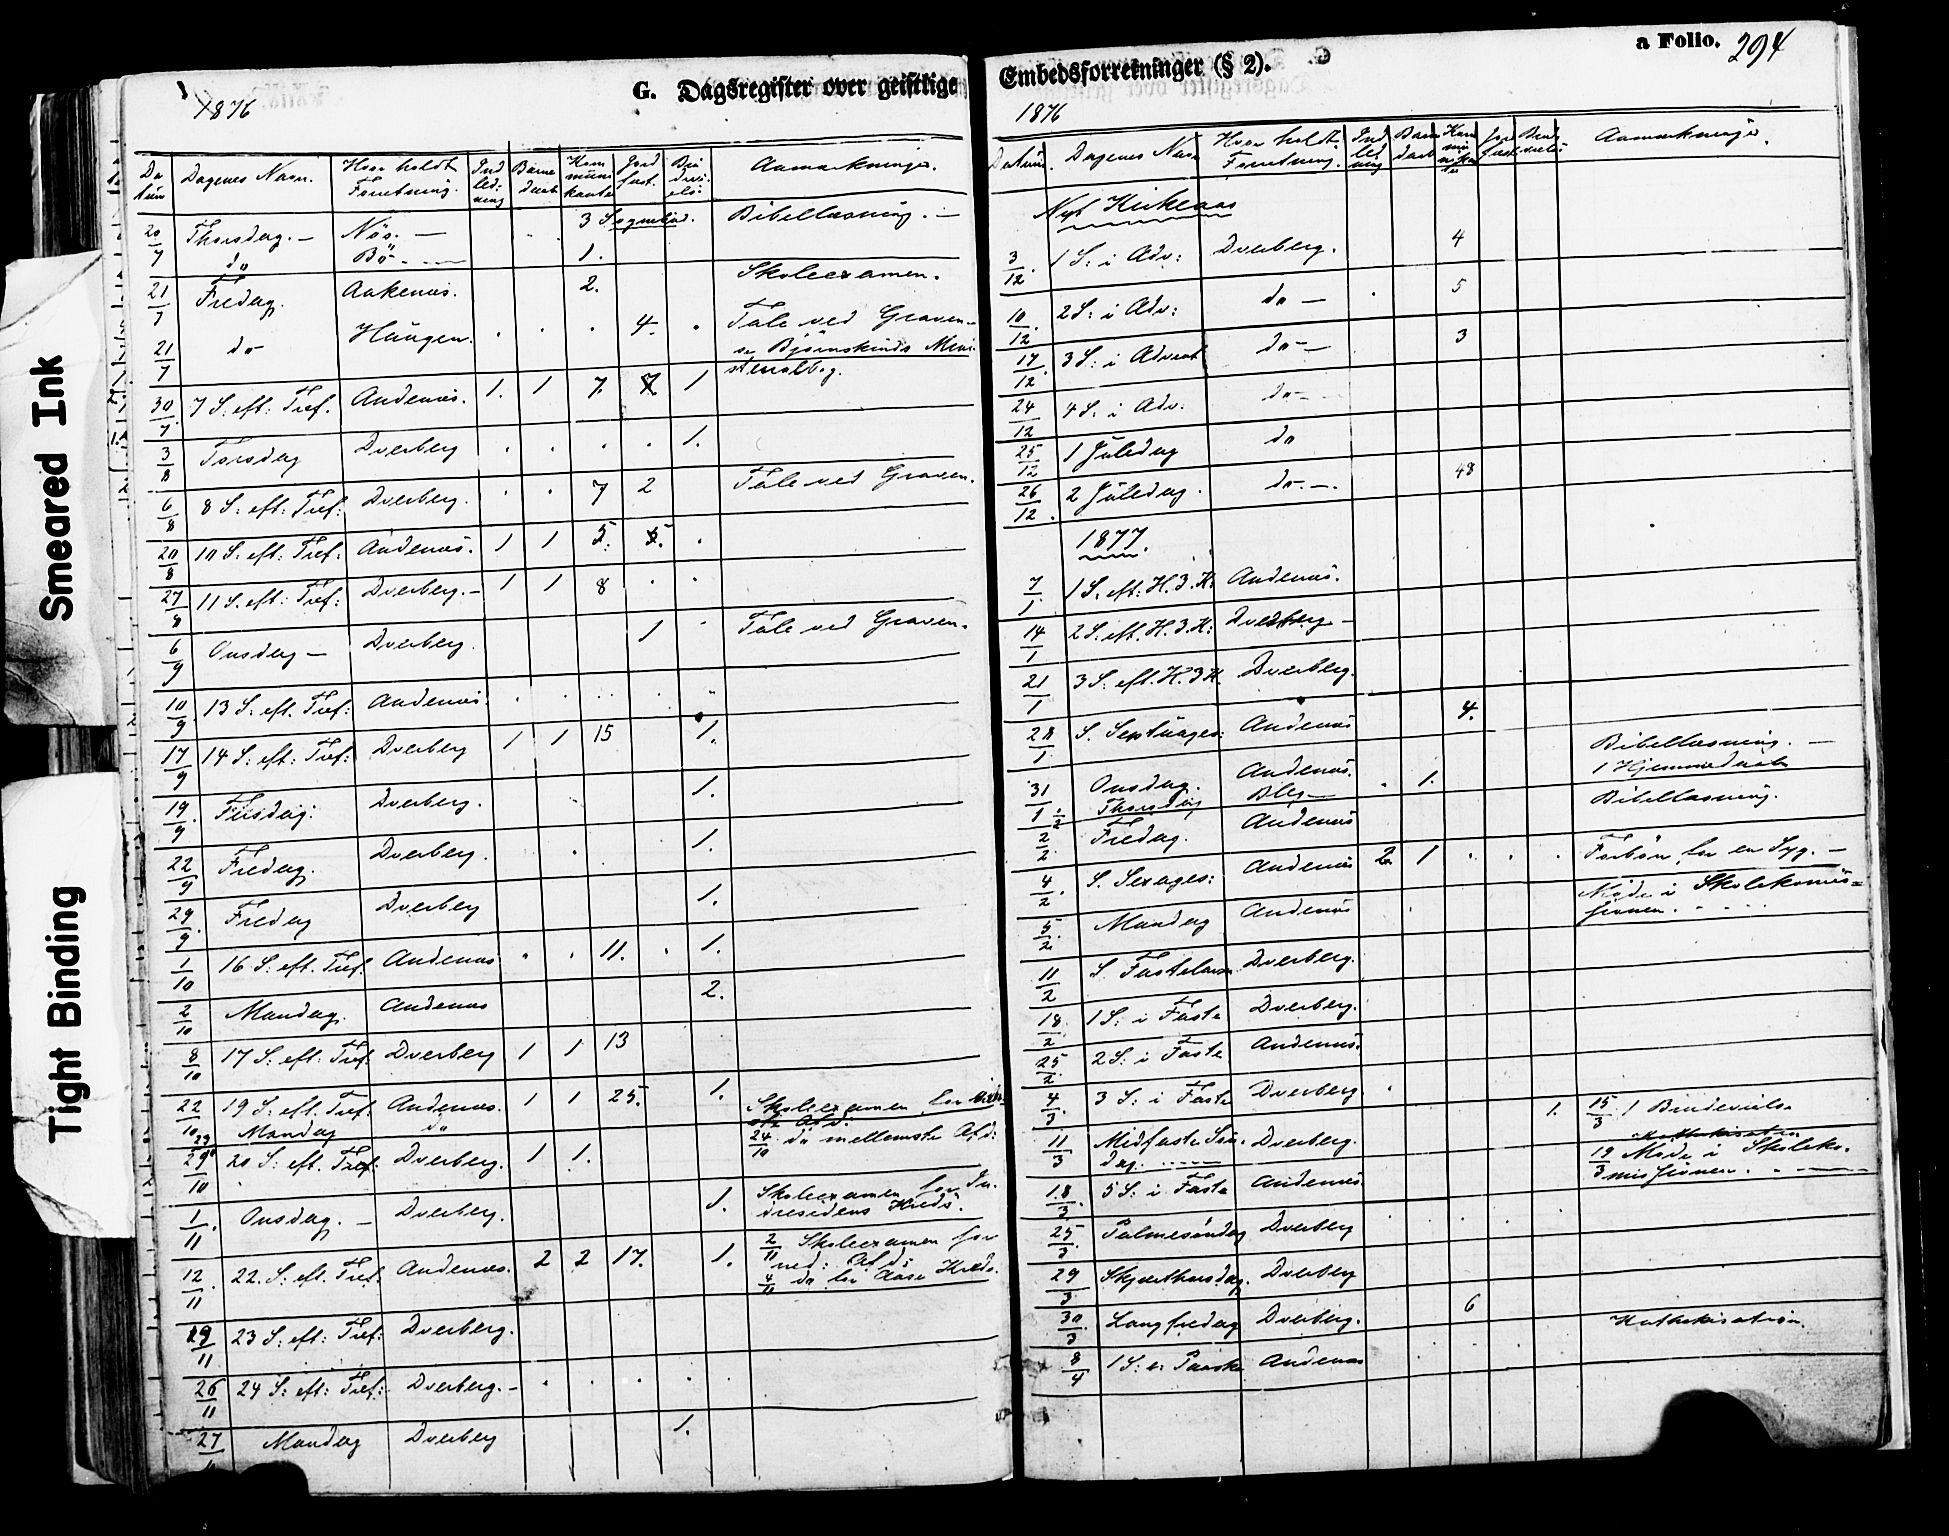 Smeared Ink
Tight Binding
1876
G. Dagsregister over geistlige
Da tum Dagenes Navn. Hvor holdt Forretning. Ind led- ning Barne daab Kom muni kanter Jord fæst. Bru devi else Anmærkninger.
20/7 Thorsdag. — Näs. — 3 Sognebud. Bibellæsning. —
do Bö. — 1.
21/7 Fredag. Aakenæs. 2. Skoleexamen.
21/7 do Haugen. 4. Tale ved Graven
30/7 7 S. eft: Tref. Andenæs. 1. 1 7. 1
3/8 Torsdag Dverberg 1.
6/8 8 S. eft: Tref: Dverberg. 7 2 Tale ved Graven.
20/8 10 S. eft: Tref: Andenæs. 1 1 5.
27/8 11 S. eft: Tref: Dverberg. — 1 1 8
6/9 Onsdag — Dverberg 1 Tale ved Graven.
10/9 13 S. eft. Tref: Andenæs.
17/9 14 S: eft: Tref: Dverberg 1 1 15 1.
19/9 Tirsdag: Dverberg. 1.
22/9 Fredag. Dverberg. 1.
29/9 Fredag Dverberg 1.
1/10 16 S. eft. Tref. Andenæs 11. 1.
2/10 Mandag. Andenæs 2.
8/10 17 S: eft: Tref: Dverberg 1 1 13
22/10 19 S. eft. Tref: Andenæs. 1 1 25. 1. Skoleexamen for
23 Mandag do 24/10 do mellemste Afd:
29/10 20 S: eft. Tref. Dverberg. 1 1.
1/11 Onsdag. — Dverberg. 1. Skoleexamen for
Kreds.
12/11 22. S: eft. Tref. Andenæs. 2 2 17. 1. 2/11 Skoleexamen for
ned: Afd:
4/11 do for Aase Kreds.
19/11 23 S: eft: Tref: Dverberg.
26/11 24 S: eft: Tref: Dverberg. —
27 Mandag Dverberg 1.
Embedsforretninger (§ 2).
a Folio. 294
1876
Datum. Dagenes Navn Hvor holdt Forretning. Ind led ning Barne daab Kom mu nikan ter Jord fæst Brude vielse Anmærkninger.
Nyt Kirkeaar
3/12. 1 S: i Adv: Dverberg. 4
10/12. 2 S: i Adv: do — 5
17/12. 3 S: i Advent do — 3
24/12 4 S: i Adv. do —
25/12 1 Juledag do
26/12. 2 Juledag. do — 48
1877.
7/1 1 S. eft: H. 3. K: Andenæs.
14/1 2 S. eft. H. 3. K: Dverberg —
21/1 3 S: eft. H. 3 K. Dverberg.
28/1 S. Septuages: Andenæs 4.
31/1 Onsdag. Andenæs. 1. Bibellæsning. —
1/2 Thorsdag Bleg — 1 Hjemmedaab
2/2 Fredag. Andenæs Bibellæsning.
4/2. S. Sexages: Andenæs 2 1 Forbøn for en Syg. —
5/2. Mandag Andenæs Møde i Skolekomis=
sionen.
11/2 S. Fastelavn Dverberg.
18/2. 1 S: i Faste Dverberg.
25/2. 2 S: i Faste Andenæs.
4/3. 3 S: i Faste Dverberg
11/3 Midfaste Søn- Dverberg. 1. 15/3 1 Brudevielse
dag. Kathekisation
18/3 5 S: i Faste Andenæs 19/3 Møde i Skoleko-
missionen.
25/3. Palmesøndag Dverberg
29/3 Skjærthorsdag. Dverberg
30/3 Langfredag Dverberg. 6 Kathekisation.
8/4 1 S: e. Paaske Andenæs